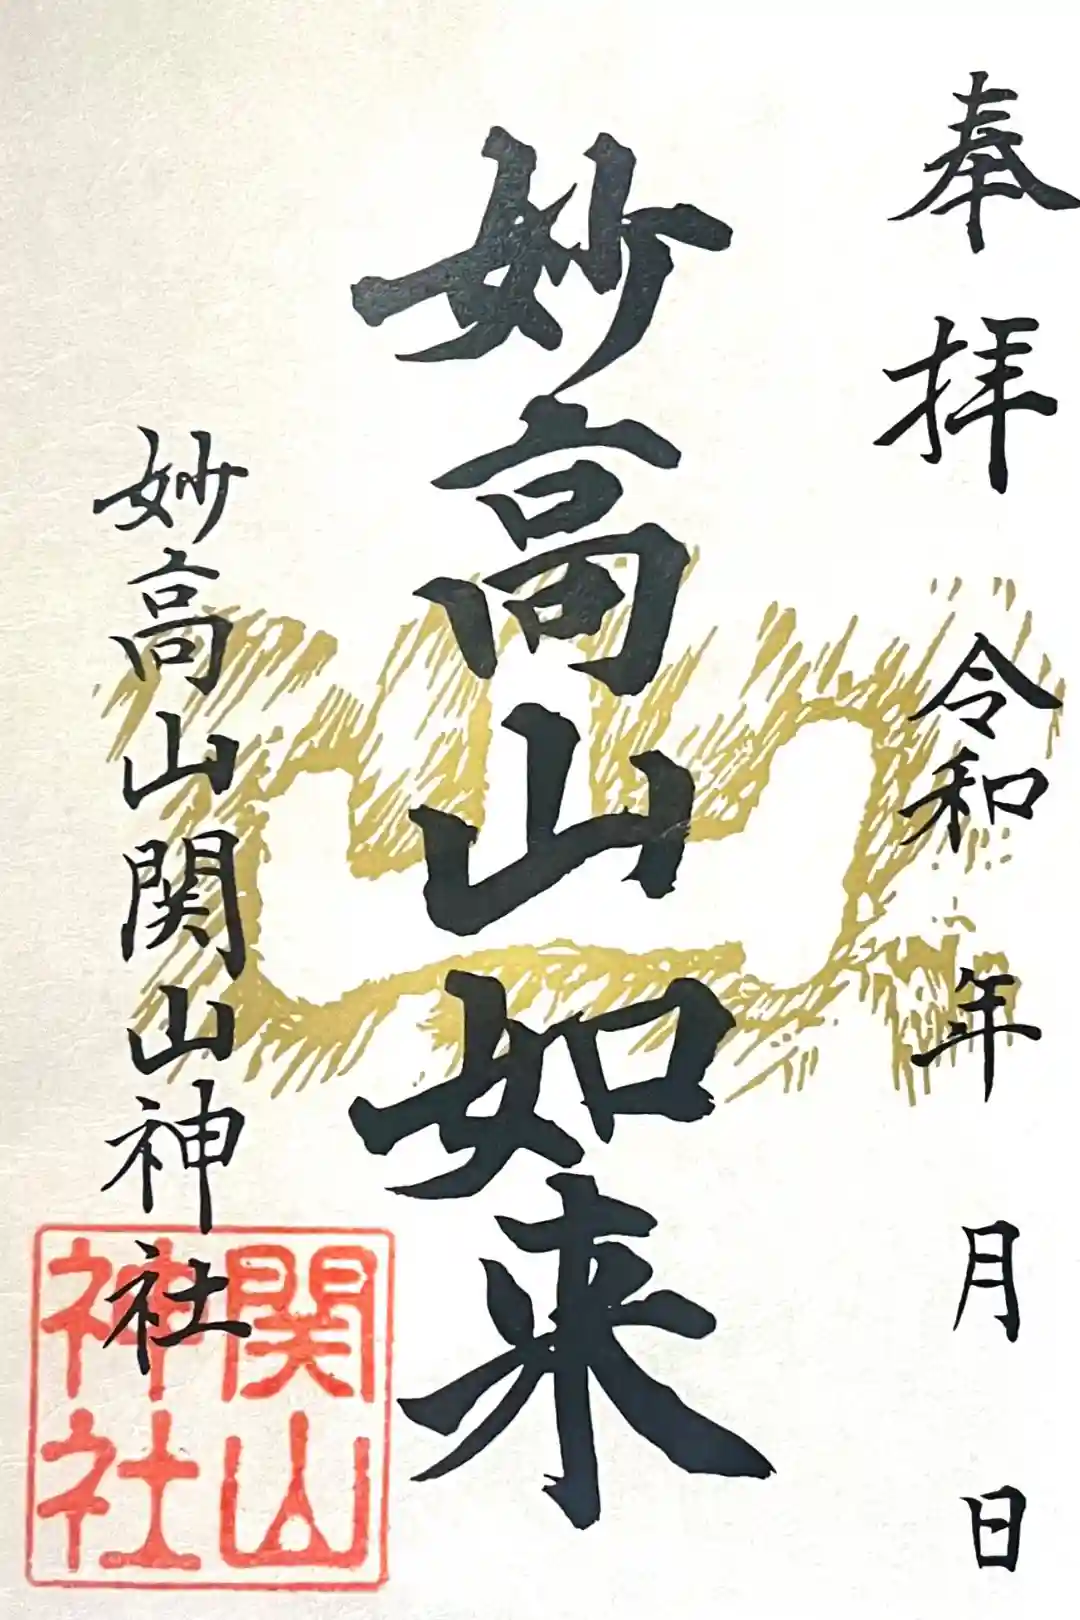 奉拝
令和 年 月 日
妙高山如来
妙高山関山神社
関山
神社